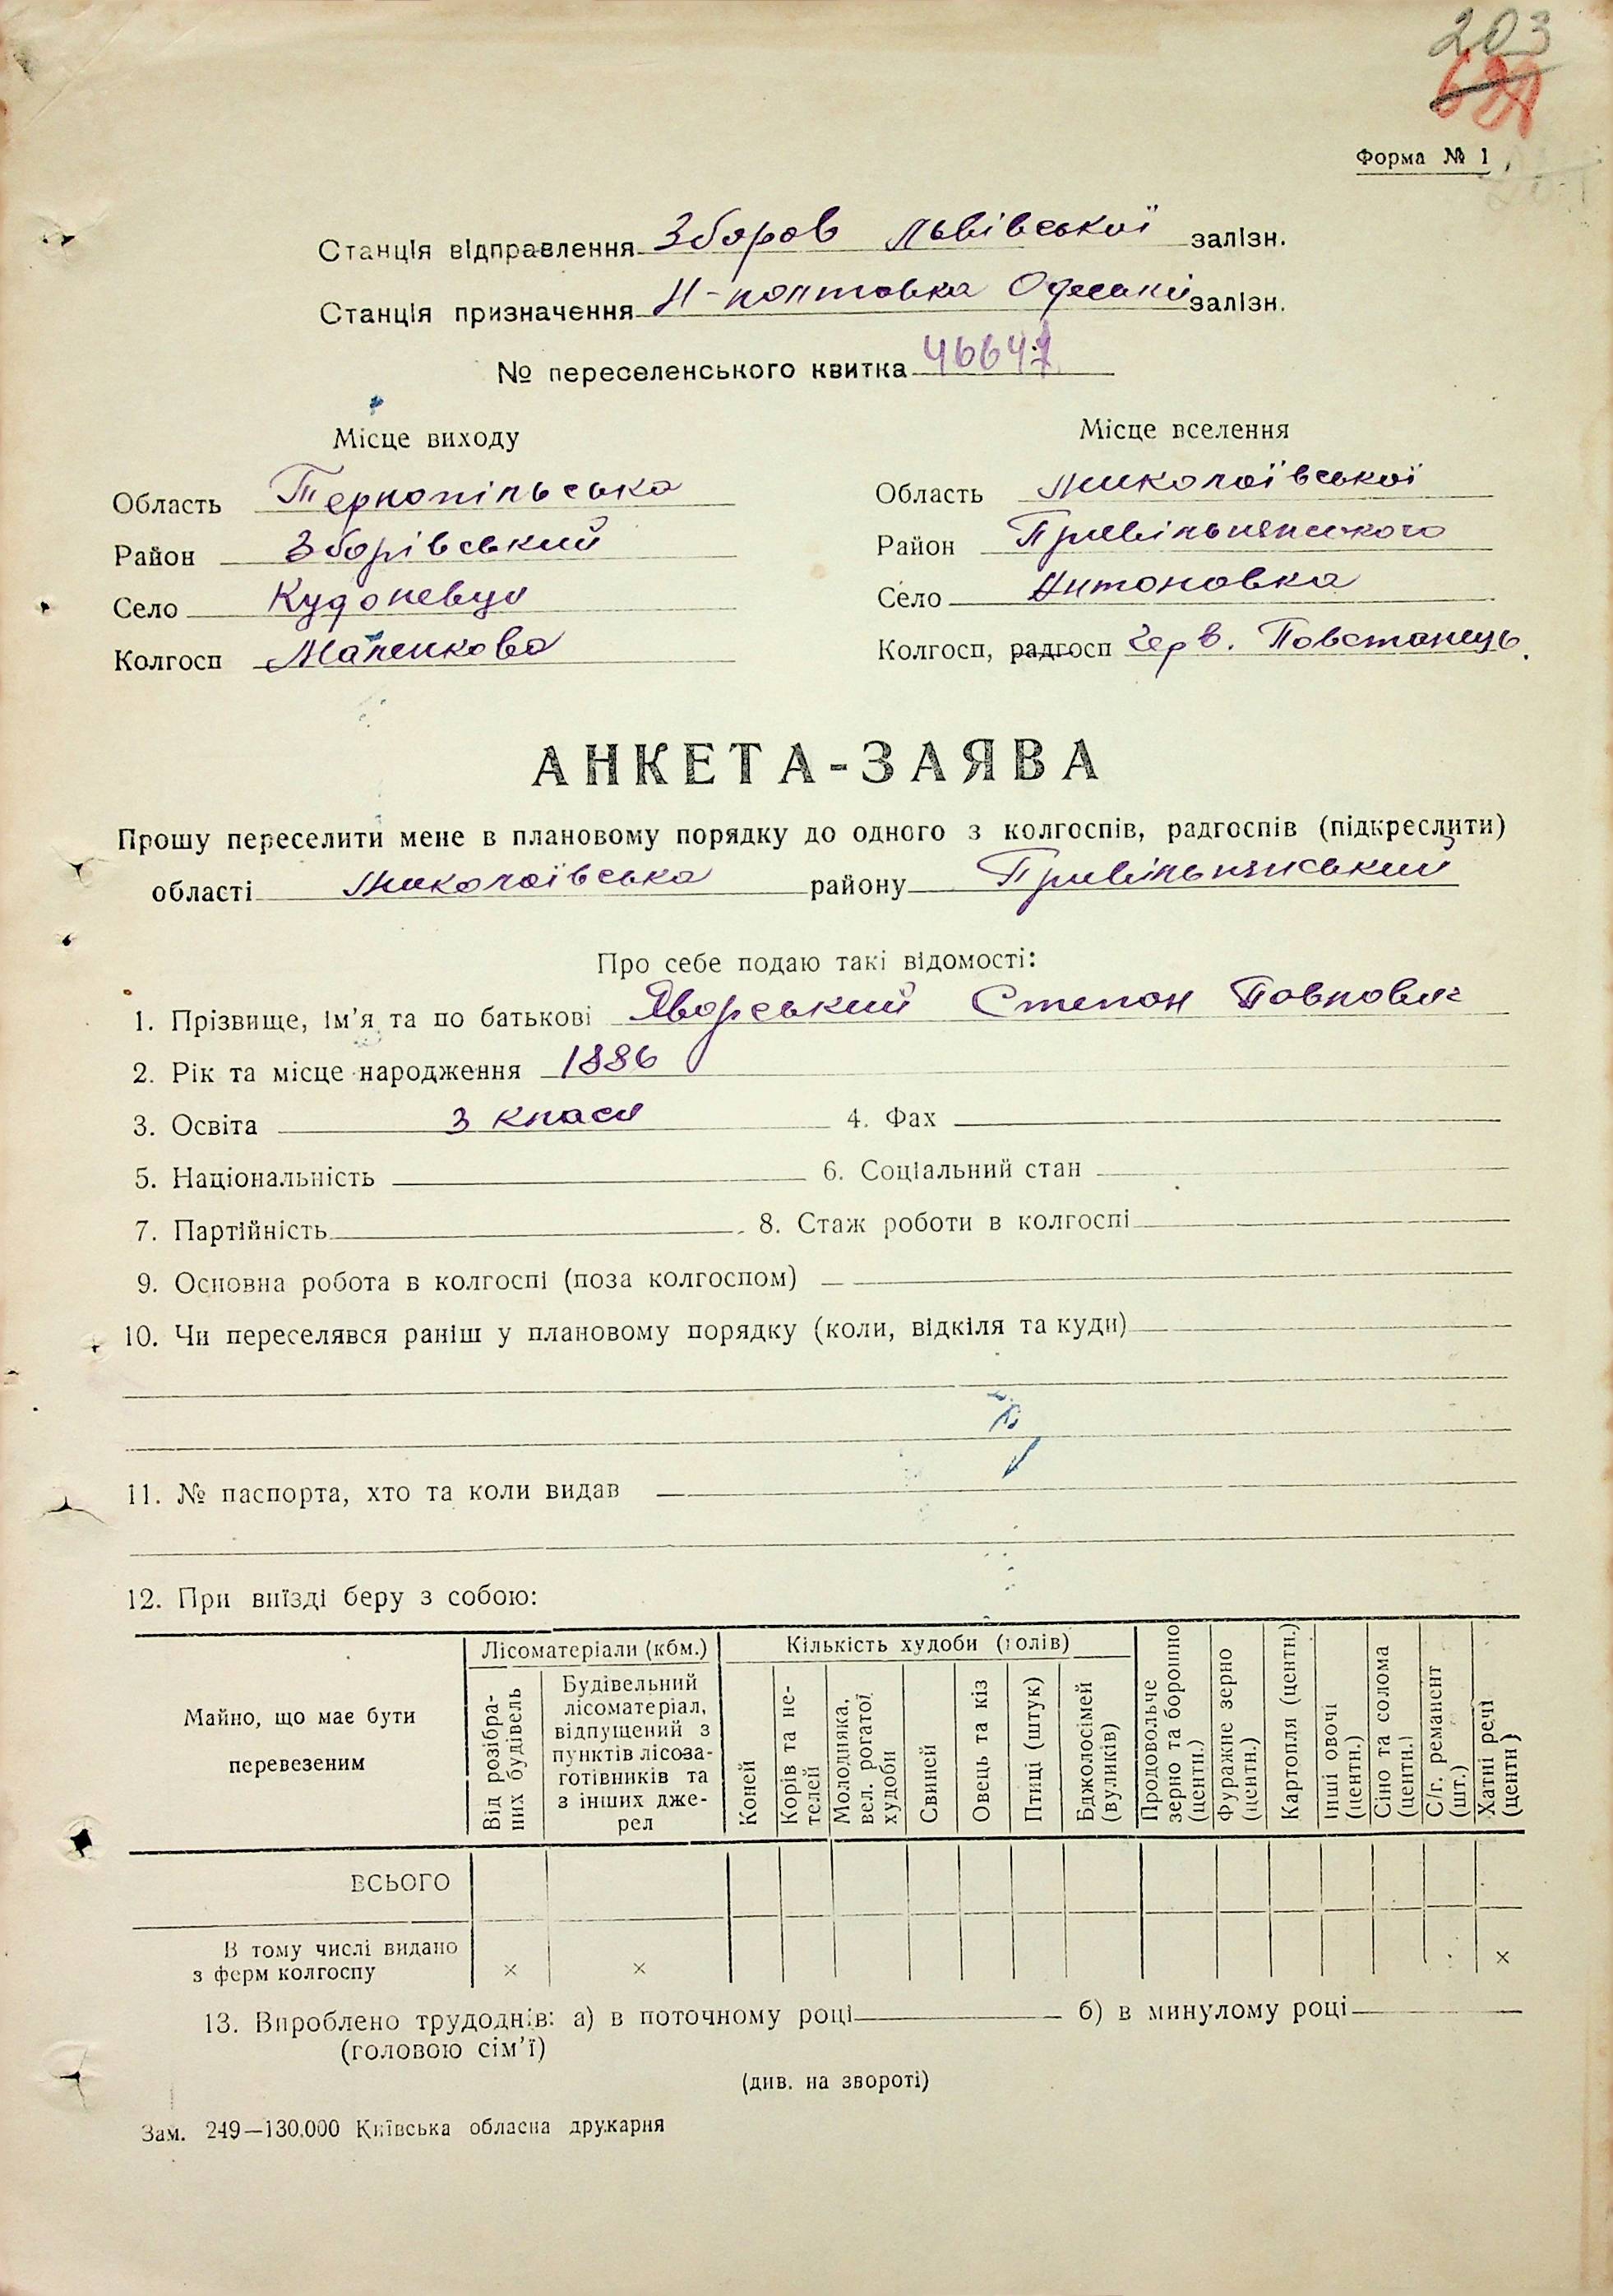 203
Форма № 1
Станція відправлення Зборов Львівської залізн.
Станція призначення Н-полтовка Одеській залізн.
№ переселенського квитка
Місце виходу
Місце вселення
Область Тернопільська
Область Миколаївської
Район Зборівський
Район Привільнянського
Село Кудоневци
Село Антоновка
Колгосп Маленкова
Колгосп, радгосп Черв. Повстанець.
АНКЕТА-ЗАЯВА
Прошу переселити мене в плановому порядку до одного з колгоспів, радгоспів (підкреслити)
області Миколаївська району Привільнянський
Про себе подаю такі відомості:
1. Прізвище, ім'я та по батькові Яворський Степан Павлович
2. Рік та місце народження 1886
3. Освіта 3 класи 4. Фах
5. Національність 6. Соціальний стан
7. Партійність 8. Стаж роботи в колгоспі
9. Основна робота в колгоспі (поза колгоспом) —
10. Чи переселявся раніш у плановому порядку (коли, відкіля та куди)
11. № паспорта, хто та коли видав
12. При виїзді беру з собою:
Майно, що має бути
перевезеним
Лісоматеріали (кбм.)
Від розібра-
них будівель
Будівельний
лісоматеріал,
відпущений з
пунктів лісоза-
готівників та
з інших дже-
рел
Кількість худоби (голів)
Коней
Корів та не-
телей
Молодняка,
вел. рогатої
худоби
Свиней
Овець та кіз
Птиці (штук)
Бджолосімей
(вуликів)
Продовольче
зерно та борошно
(центн.)
Фуражне зерно
(центн.)
Картопля (центн.)
Інші овочі
(центн.)
Сіно та солома
(центн.)
С/г. реманент
(шт.)
Хатні речі
(центн)
ВСЬОГО
В тому числі видано
з ферм колгоспу × × ×
13. Вироблено трудоднів: а) в поточному році б) в минулому році
(головою сім'ї)
(див. на звороті)
Зам. 249—130.000 Київська обласна друкарня